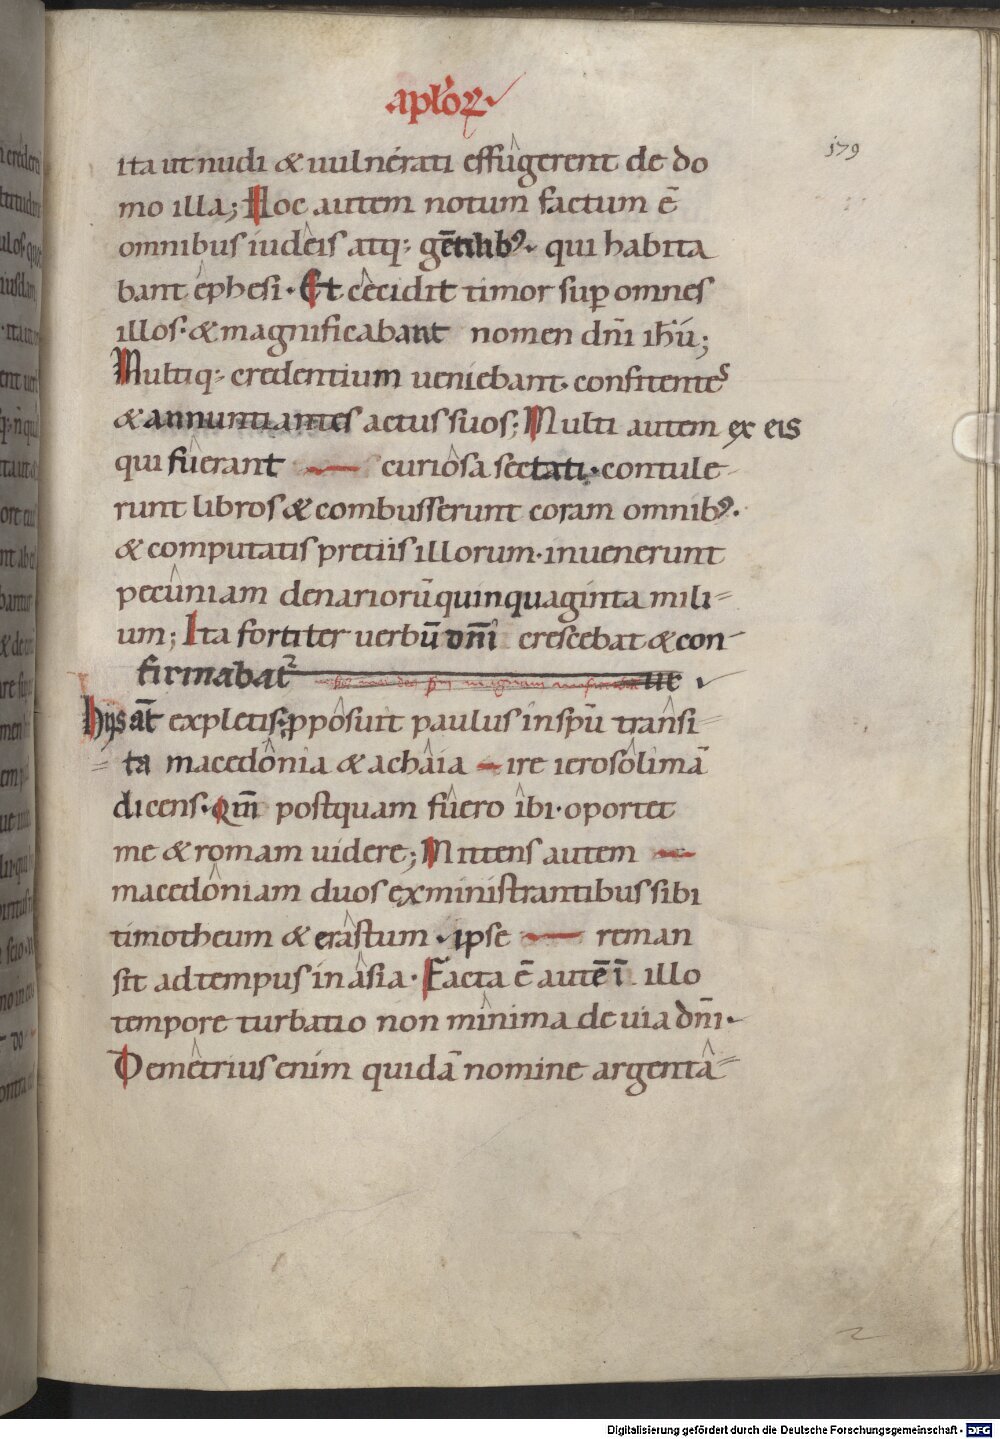 aplōꝝ
179
ita ut nudi & uulnerati effugerent de do
mo illa; Hoc autem notum factum ē
omnibus iudeis atq; gētilibꝰ qui habita
bant ephesi. Et cecidit timor sup omnes
illos. & magnificabant nomen dn̄i ih̄ū;
Multiq; credentium ueniebant. confitentes
& annuntiantes actus suos; Multi autem ex eis
qui fuerant curiosa sectati. contule-
runt libros & combusserunt coram omnibꝰ.
& computatis pretiis illorum. inuenerunt
pecuniam denariorū quinquaginta mili-
um; Ita fortiter uerbū dn̄i crescebat & con-
firmabat᷑
hijs at̄ expletis. pposuit paulus in sp̄u transi-
ta macedonia & achaia ire ierosolimā
dicens. Qm̄ postquam fuero ibi. oportet
me & romam uidere; Mittens autem
macedoniam duos ex ministrantibus sibi
timotheum & erastum. ipse reman
sit ad tempus in asia. Facta ē autē ī illo
tempore turbatio non minima de uia dn̄i.
Demetrius enim quidā nomine argenta-
Digitalisierung gefördert durch die Deutsche Forschungsgemeinschaft - DFG